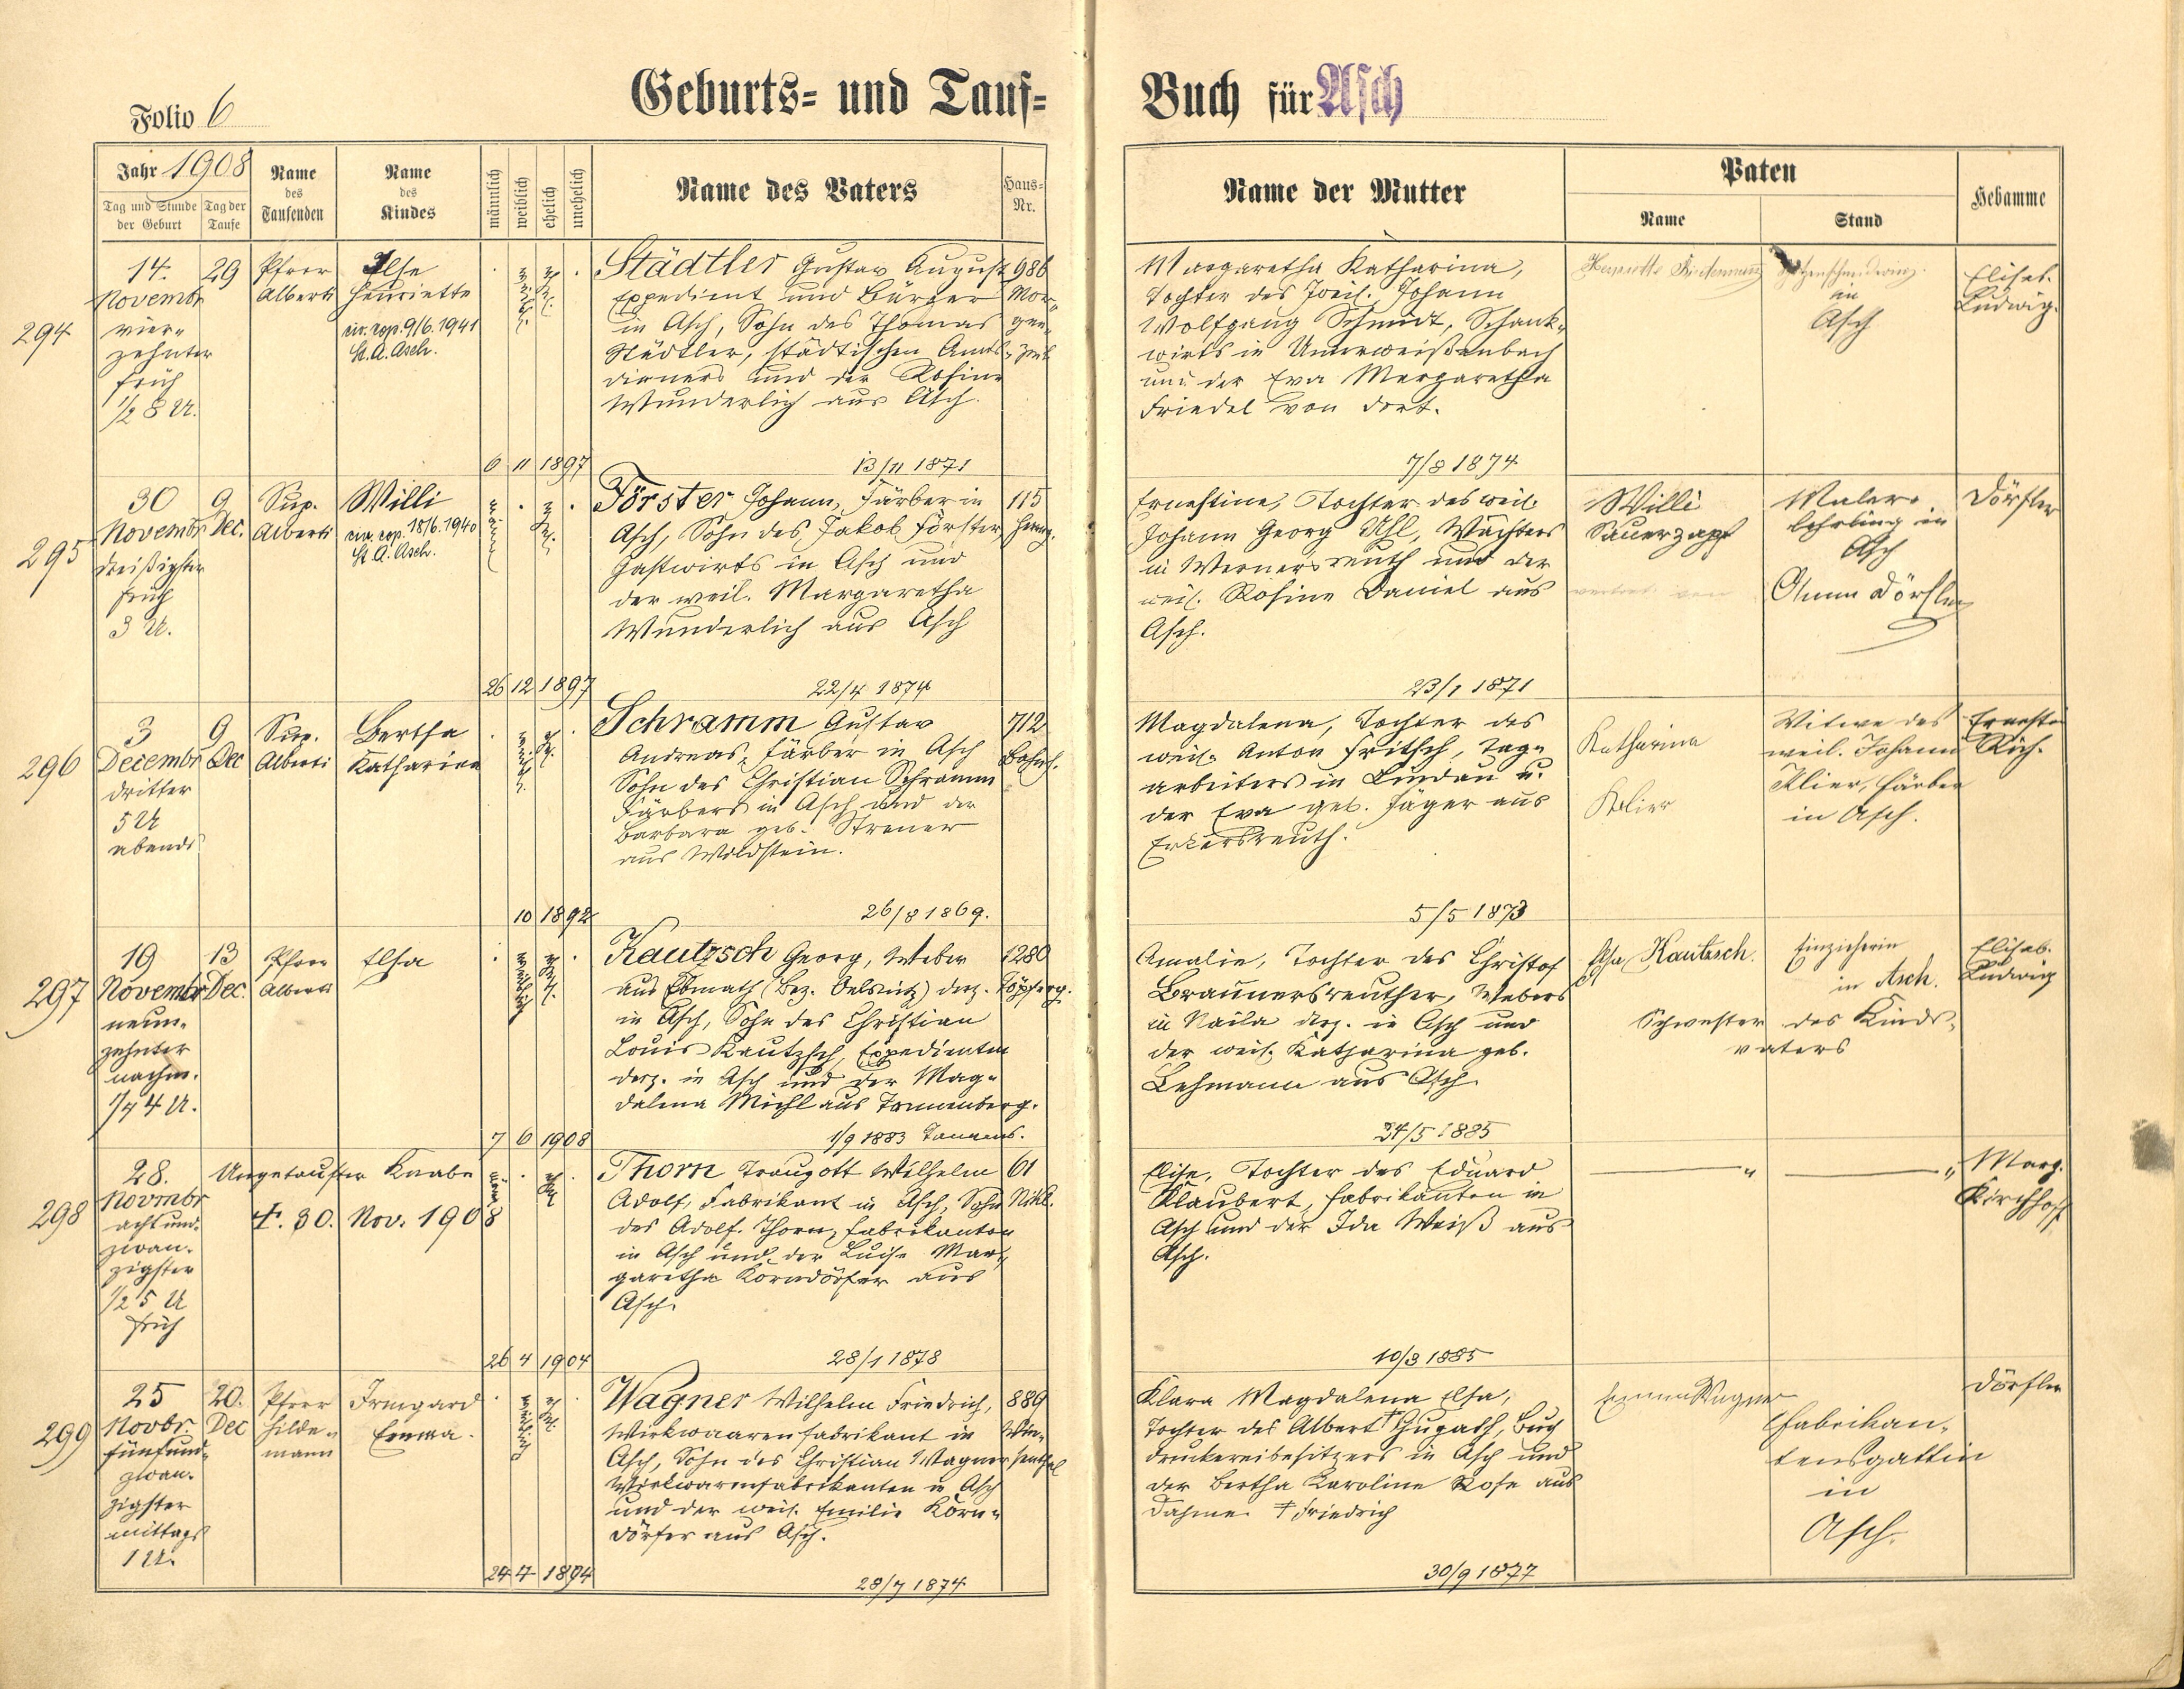 Folio 6
Geburts= und Tauf=
Buch für Asch
Jahr 1908
Tag und Stunde der Geburt
Tag der Taufe
Name des Taufenden
Name des Kindes
männlich
weiblich
ehelich
unehelich
Name des Vaters
Haus= Nr.
Name der Mutter
Paten
Name
Stand
Hebamme
294
14.
Novembr
vier=
zehnter
früh
1/2 8 U.
29
Pfrer
Alberti
Ilse
Henriette
civ. cop. 9/6. 1941
St. A. Asch.
6 11 1897
Städtler Gustav August
Expedient und Bürger
in Asch, Sohn des Thomas
Städtler, städtischen Amts=
dieners und der Rosine
Wunderlich aus Asch.
13/11 1871
986
Mor=
gen=
zeil
Margaretha Katharina,
Tochter des weil. Johann
Wolfgang Schmidt, Schank=
wirts in Unterweißenbach
und der Eva Margaretha
Friedel von dort.
7/8 1874
in
Asch
Elisab.
Ludwig.
295
30
Novembr
dreißigster
früh
3 U.
9
Dec.
Sup.
Alberti
Willi
civ. cop. 18/6. 1940
St. A. Asch.
26 12 1897
Förster Johann, Färber in
Asch, Sohn des Jakob Förster
Gastwirts in Asch und
der weil. Margaretha
Wunderlich aus Asch
22/4 1874
115
Ernestine, Tochter des weil.
Johann Georg Uhl, Wächters
in Wernersreuth und der
weil. Rosine Daniel aus
Asch.
23/1 1871
Willi
Sauerzapf
vertret. von
Maler=
lehrling in
Asch
Anna Dörfler
Dörfler
296
3
Decembr
dritter
5 U
abends
9
Dec
Sup.
Alberti
Bertha
Katharina
10 1892
Schramm Gustav
Andreas, Färber in Asch
Sohn des Christian Schramm
Färbers in Asch und der
Barbara geb. Streuer
aus Wildstein.
26/8 1869.
712
Bahnh.
Magdalena, Tochter des
weil. Anton Fritsch, Tag=
arbeiters in Lindau u.
der Eva geb. Jäger aus
Erkersreuth.
5/5 1873
Katharina
Klier
Witwe des
weil. Johann
Klier, Färber
in Asch.
297
19
Novembr
neun=
zehnter
nachm.
1/4 4 U.
13
Dec.
Pfrer
Alberti
Elsa
7 6 1908
Kautzsch Georg, Weber
aus Ebmath (Bez. Oelsnitz) derz.
in Asch, Sohn des Christian
Louis Kautzsch, Expedienten
derz. in Asch und der Mag=
dalena Michl aus Tannenberg.
1/9 1883 Tannenb.
1280
Töpferg.
Amalie, Tochter des Christof
Braunersreuther, Webers
in Naila derz. in Asch und
der weil. Katharina geb.
Lehmann aus Asch.
Kautzsch.
in Asch.
Schwester des Kinds=
vaters
Elisab.
Ludwig
298
28.
Novmbr
acht und=
zwan=
zigster
1/2 5 U
früh
Ungetaufter Knabe
†. 30. Nov. 1908
26 4 1904
Thorn Traugott Wilhelm
Adolf, Fabrikant in Asch, Sohn
des Adolf Thorn, Fabrikanten
in Asch und der Luise Mar=
garetha Korndörfer aus
Asch.
28/1 1878
61
Nikl.
Elise, Tochter des Eduard
Klaubert, Fabrikanten in
Asch und der Ida Weiß aus
Asch.
10/3 1885
Marg.
Kirchhoff
299
25
Novbr.
fünfund=
zwan=
zigster
mittags
1 U.
20.
Dec
Pfrer
Hilde=
mann
Irmgard
Emma.
Wagner Wilhelm Friedrich,
Wirkwaarenfabrikant in
Asch, Sohn des Christian Wagner
Wirkwarenfabrikanten in Asch
und der weil. Emilie Korn=
dörfer aus Asch.
28/7 1874
889
Klara Magdalena Elsa,
Tochter des Albert † Hugath, Buch
druckereibesitzers in Asch und
der Bertha Karoline Rose aus
Dahme. † Friedrich
30/9 1877
Emma Wagner
Fabrikan=
tensgattin
in
Asch.
Dörfler